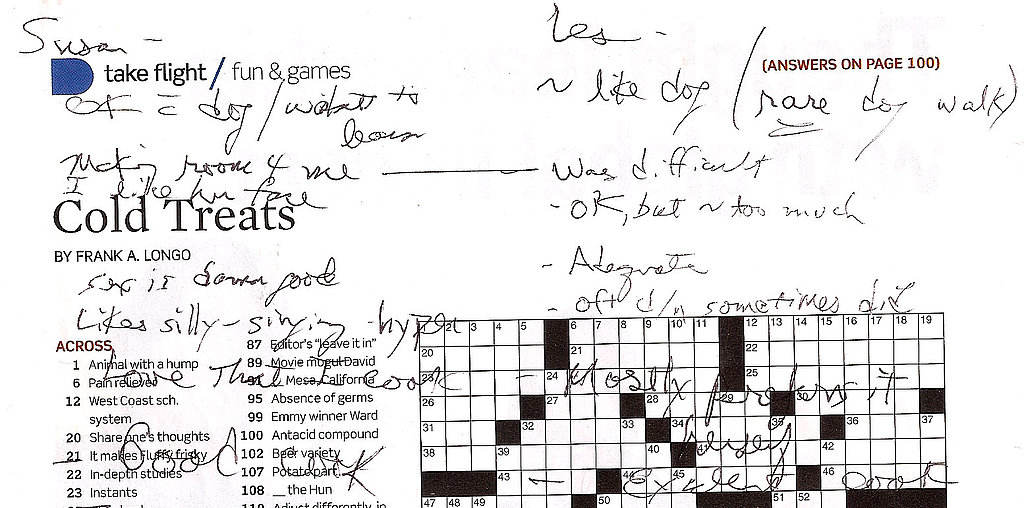 Susan -
Les -
take flight / fun & games
(ANSWERS ON PAGE 100)
OK = dog / wants to
learn
~ like dog (rare dog walk)
Making room 4 me
was difficult
I like her face
- OK, but ~ too much
Cold Treats
BY FRANK A. LONGO
sex is damn good
- Adequate
Likes silly - singing - hyper
- oft d/n sometimes did
ACROSS
1 Animal with a hump
6 Pain reliever
12 West Coast sch.
system
20 Share one's thoughts
21 It makes Fluffy frisky
22 In-depth studies
23 Instants
87 Editor's "leave it in"
89 Movie mogul David
Mesa, California
95 Absence of germs
99 Emmy winner Ward
100 Antacid compound
102 Beer variety
107 Potato part
108 __ the Hun
110 Adjust differently, in
Love that I cook
- Mostly prefers it
herself
- Great cook
- Excellent cook
1 2 3 4 5 6 7 8 9 10 11 12 13 14 15 16 17 18 19
20 21 22
23 24 25
26 27 28 29 30
31 32 33 34 35 36 37
38 39 40 41 42
43 44 45 46
47 48 49 50 51 52